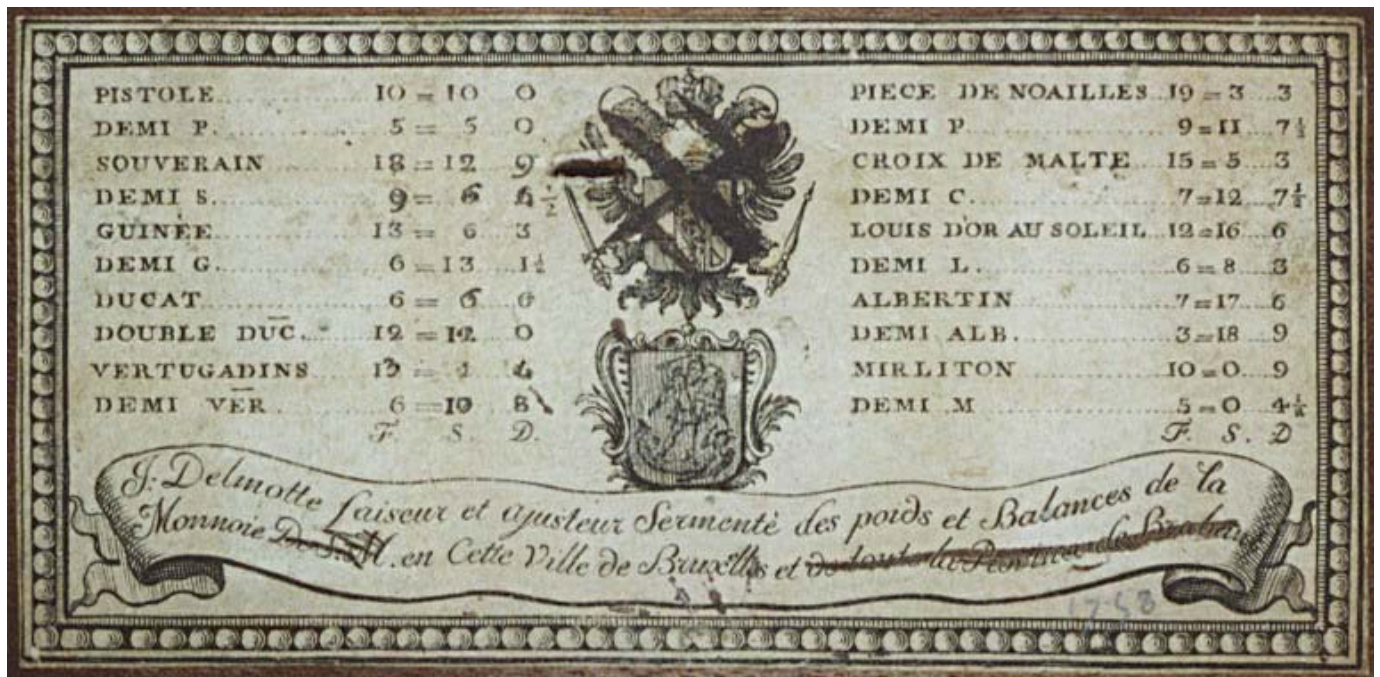 PISTOLE 10 = 10 0
DEMI P. 5 = 5 0
SOUVERAIN 18 = 12 9
DEMI S. 9 = 6 4 1/2
GUINÉE 13 = 6 3
DEMI G. 6 = 13 1 1/2
DUCAT 6 = 6 0
DOUBLE DUC. 12 = 12 0
VERTUGADINS 13 = 1 4
DEMI VER. 6 = 10 8
F. S. D.
PIECE DE NOAILLES 19 = 3 3
DEMI P. 9 = 11 7 1/2
CROIX DE MALTE 15 = 5 3
DEMI C. 7 = 12 7 1/2
LOUIS D'OR AU SOLEIL 12 = 16 6
DEMI L. 6 = 8 3
ALBERTIN 7 = 17 6
DEMI ALB. 3 = 18 9
MIRLITON 10 = 0 9
DEMI M 5 = 0 4 1/2
F. S. D
J: Delmotte faiseur et ajusteur Sermenté des poids et Balances de la
Monnoie en Cette Ville de Bruxelles et de toute la Province de Brabant
1758